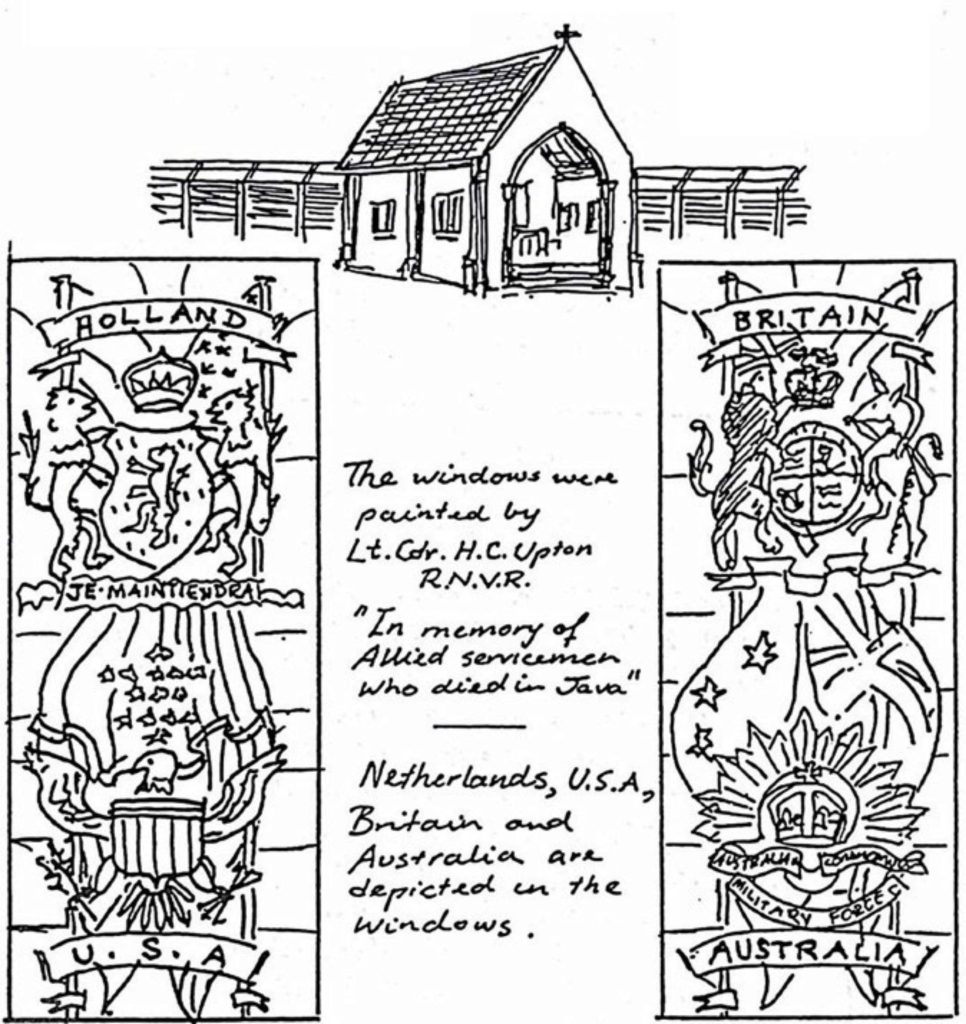 HOLLAND
JE·MAINTIENDRA
U. S. A
The windows were
painted by
Lt. Cdr. H.C. Upton
R.N.V.R.
"In memory of
Allied servicemen
who died in Java"
Netherlands, U.S.A,
Britain and
Australia are
depicted in the
windows.
BRITAIN
AUSTRALIAN
MILITARY FORCES
AUSTRALIA